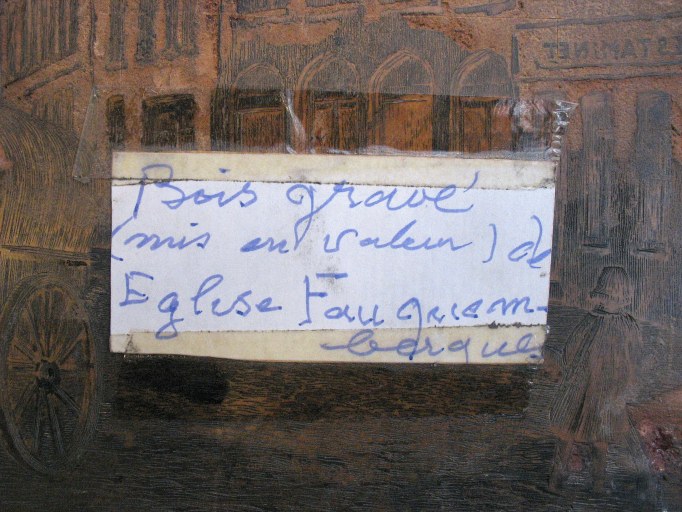 ESTAMINET
Bois gravé
(mis en valeur) de
Eglise Fauquem-
bergues